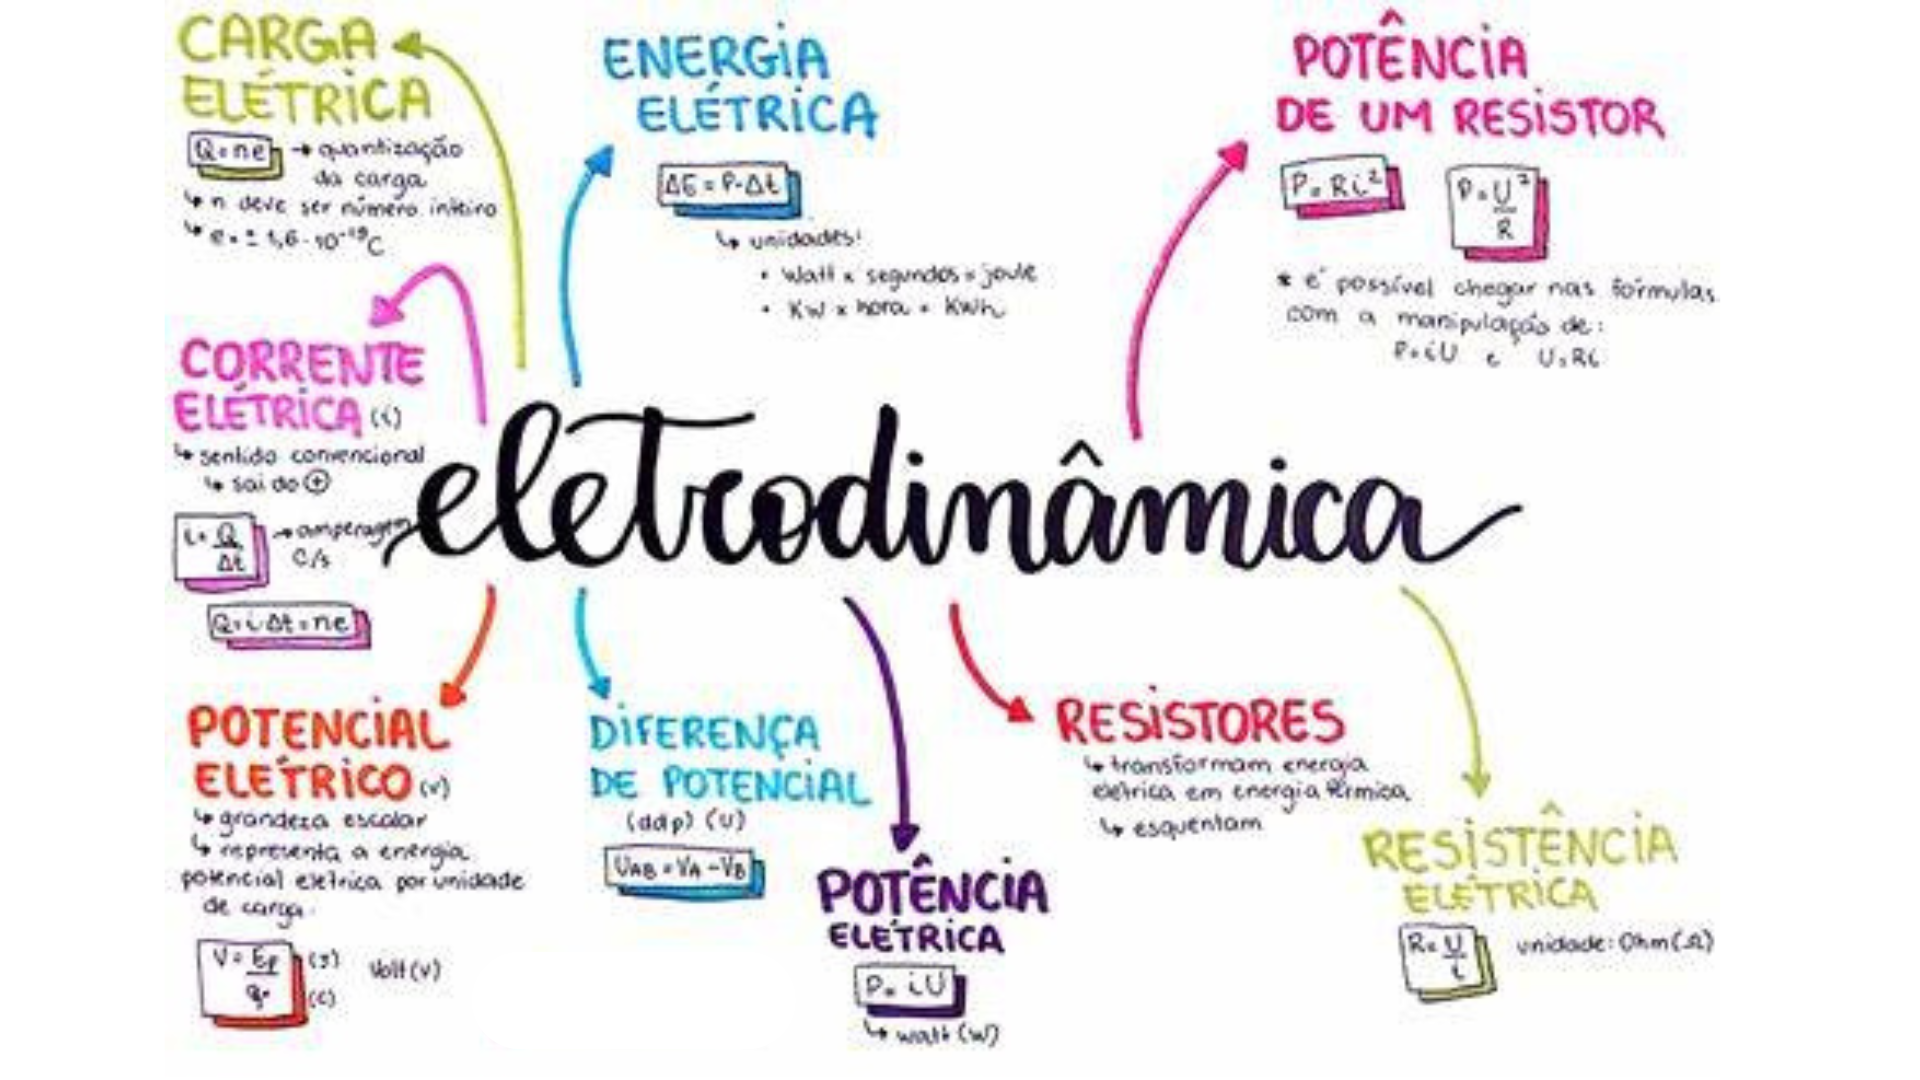 CARGA
ELÉTRICA
Q=ne → quantização
da carga
↳ n deve ser número inteiro
↳ e = ± 1,6 · 10⁻¹⁹C
ENERGIA
ELÉTRICA
ΔE = P·Δt
↳ unidades:
• Watt x segundos = joule
• KW x hora = KWh
POTÊNCIA
DE UM RESISTOR
P = Ri²
P = U²
R
* é possível chegar nas fórmulas
com a manipulação de:
P=iU e U=Ri
CORRENTE
ELÉTRICA (i)
↳ sentido convencional
↳ sai do ⊕
i = Q
Δt
→ amperagem
C/s
Q=i·Δt=ne
eletrodinâmica
POTENCIAL
ELÉTRICO (v)
↳ grandeza escalar
↳ representa a energia
potencial elétrica por unidade
de carga.
V = Ep (J)
q (C)
Volt (v)
DIFERENÇA
DE POTENCIAL
(ddp) (U)
UAB = VA - VB
POTÊNCIA
ELÉTRICA
P = iU
↳ watt (W)
RESISTORES
↳ transformam energia
elétrica em energia térmica
↳ esquentam
RESISTÊNCIA
ELÉTRICA
R = U
i
unidade: Ohm (Ω)